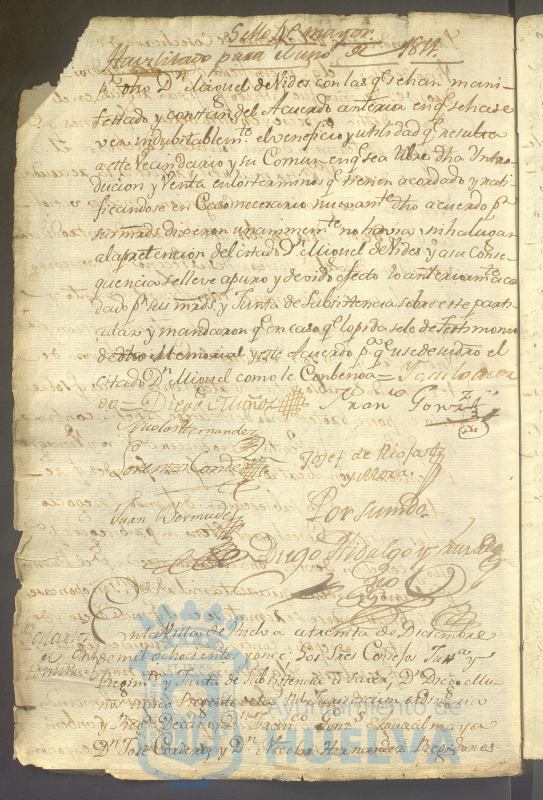 Sello 4.º mayor.
Havilitado para el año de 1811.
dho Dn Miguel de Vides con las q.e se han mani-
festado y constan del Acuerdo anterior en q.e se hace
ver indubitablem.te el beneficio y utilidad q.e resulta
a este Vecindario y su Comun en q.e sea libre dha Intro-
ducion y Venta en los terminos q.e tienen acordado y rati-
ficandose en Caso necesario nuevam.te dho acuerdo p.r
sus mrds dixeron unanimem.te no havia ni ha lugar
a la pretencion del citado D.n Miguel de Vides y a su Conse-
quencia se lleve a puro y devido efecto lo anteriorm.te acor
dado p.r sus mrds y Junta de Subsistencia sobre este parti-
cular y mandaron q.e en caso q.e lo pida se le de testimonio
de dho Memorial y este Acuerdo p.a q.e use de su dro el
citado D.n Miguel como le Conbenga =
= Diego Muñoz Fran.co Gonz.z
Nicolas Hernandez
Lorenzo Conde Josef de Rioja
y Mora
Juan Bermudez Por su mdo
Diego Hidalgo y
En la Villa de Huelva a treinta de Diciembre
de mil ochocientos once: Los Sres Consejo Just.a y
Regim.to y Junta de Subsistencia Dn Diego Mu-
ñoz Regente de la R.l Jurisdicion ordinaria
y Regr Decano Dn Fran.co Gonz.s Alguacil mayor
Dn Jose Cordero y Dn Nicolas Hernandez Regidores
Ayuntamiento de
HUELVA